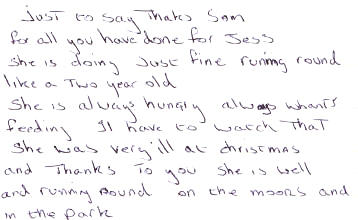 Just to say Thaks Sam
for all you have done for Jess
She is doing Just fine runing round
like a Two year old
She is always hungry always whants
feeding I'll have to watch That
She was very ill at christmas
and Thanks To you she is well
and running round on the moors and
in the park